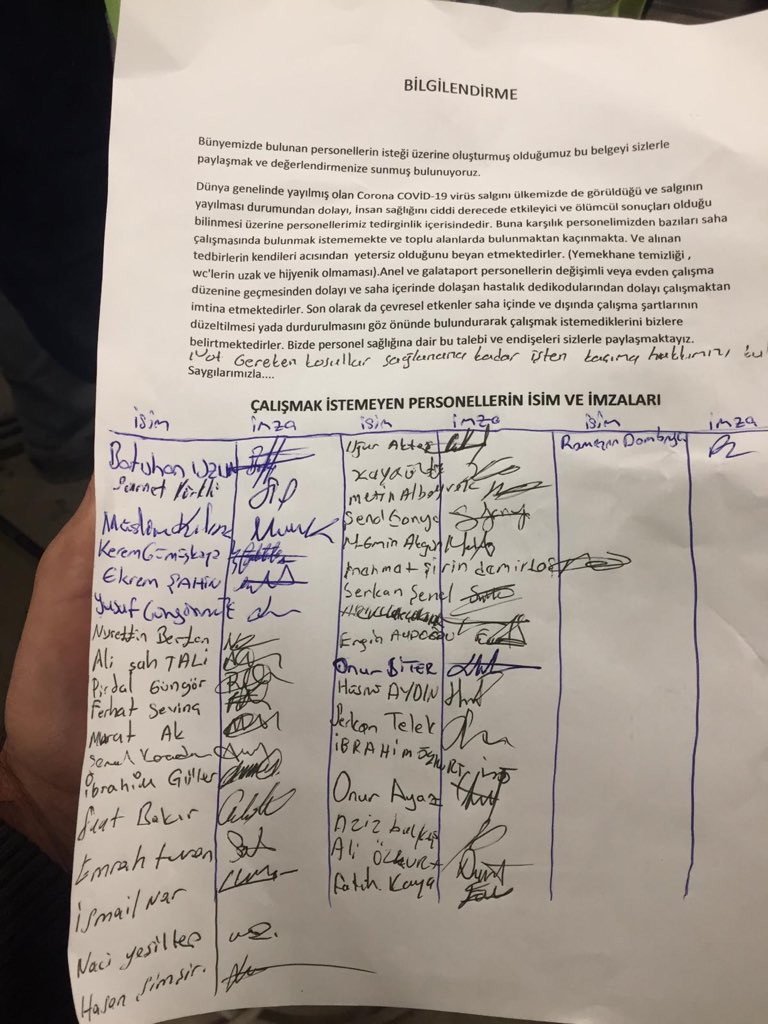 BİLGİLENDİRME
Bünyemizde bulunan personellerin isteği üzerine oluşturmuş olduğumuz bu belgeyi sizlerle
paylaşmak ve değerlendirmenize sunmuş bulunuyoruz.
Dünya genelinde yayılmış olan Corona COVİD-19 virüs salgını ülkemizde de görüldüğü ve salgının
yayılması durumundan dolayı, İnsan sağlığını ciddi derecede etkileyici ve ölümcül sonuçları olduğu
bilinmesi üzerine personellerimiz tedirginlik içerisindedir. Buna karşılık personelimizden bazıları saha
çalışmasında bulunmak istememekte ve toplu alanlarda bulunmaktan kaçınmakta. Ve alınan
tedbirlerin kendileri acısından yetersiz olduğunu beyan etmektedirler. (Yemekhane temizliği ,
wc'lerin uzak ve hijyenik olmaması).Anel ve galataport personellerin değişimli veya evden çalışma
düzenine geçmesinden dolayı ve saha içerinde dolaşan hastalık dedikodularından dolayı çalışmaktan
imtina etmektedirler. Son olarak da çevresel etkenler saha içinde ve dışında çalışma şartlarının
düzeltilmesi yada durdurulmasını göz önünde bulundurarak çalışmak istemediklerini bizlere
belirtmektedirler. Bizde personel sağlığına dair bu talebi ve endişeleri sizlerle paylaşmaktayız.
Not Gereken koşullar sağlanana kadar işten kaçınma hakkımızı
Saygılarımızla....
ÇALIŞMAK İSTEMEYEN PERSONELLERİN İSİM VE İMZALARI
isim imza isim imza isim imza
Batuhan Uzun
Müslüm Kılınç
Kerem Gümüşkaya
Ekrem ŞAHİN
Yusuf
Nurettin Bertan
Ali şah TALİ
Pirdal Güngör
Ferhat Sevinç
Murat Ak
Şenol
İbrahim Güller
Suat Bakır
Emrah turan
İsmail Nar
Naci yeşiltep
Hasan Şimşir.
Uğur Aktaş
Metin Albayrak
Send Gonya
Mümin Akgün
mahmat Şirin demirtaş
Serkan Şenel
Engin AYDOĞDU
Onur BİTER
Hasan AYDIN
Serkan Telek
İBRAHİM ÖZKURT
Onur Ayaz
Aziz
Ali ÖZKURT
Fatih Kaya
Ramazan